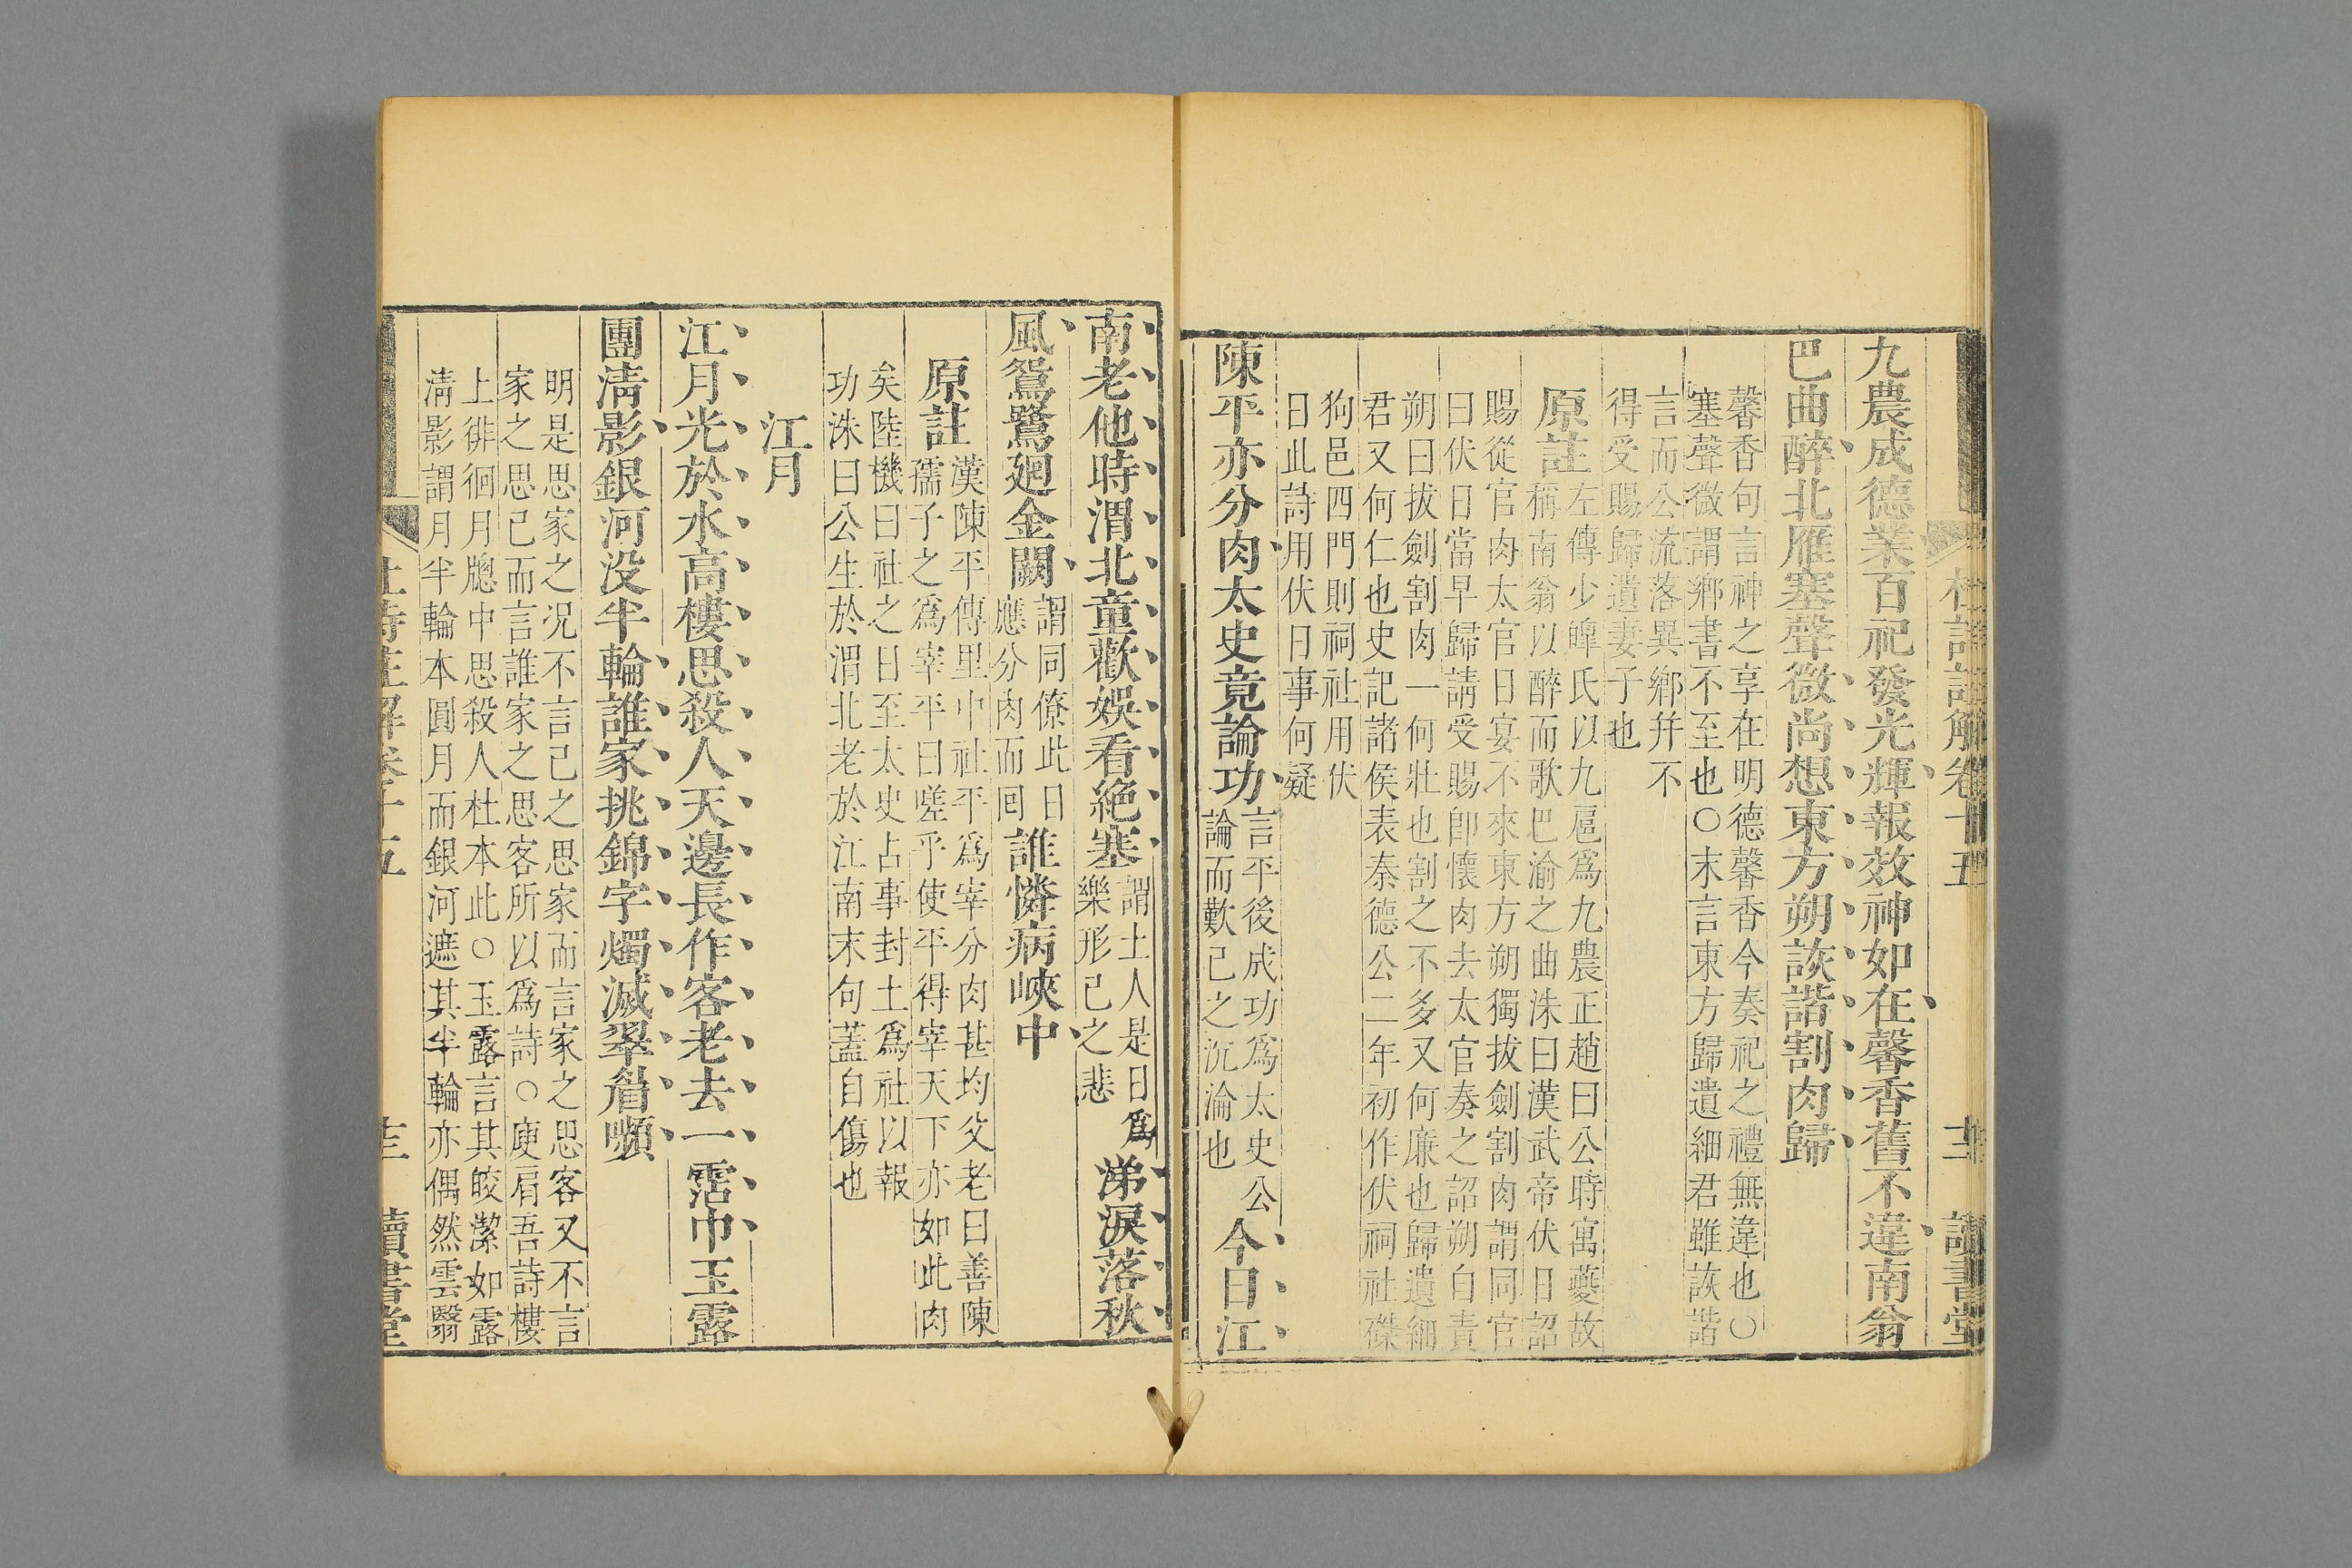 杜詩註解卷十五 十二 讀書堂
九農成德業百祀發光輝報效神如在馨香舊不違南翁
巴曲醉北雁塞聲微尚想東方朔詼諧割肉歸
馨香句言神之享在明德馨香今奏祀之禮無違也○
塞聲微謂鄉書不至也○末言東方歸遺細君雖詼諧
言而公流落異鄉并不
得受賜歸遺妻子也
原註
左傳少皥氏以九扈爲九農正趙曰公時寓夔故
稱南翁以醉而歌巴渝之曲洙曰漢武帝伏日詔
賜從官肉太官日宴不來東方朔獨拔劍割肉謂同官
曰伏日當早歸請受賜卽懷肉去太官奏之詔朔自責
朔曰拔劍割肉一何壯也割之不多又何廉也歸遺細
君又何仁也史記諸侯表秦德公二年初作伏祠社磔
狗邑四門則祠社用伏
日此詩用伏日事何疑
陳平亦分肉太史竟論功
言平後成功爲太史公
論而歎己之沉淪也
今日江
南老他時渭北童歡娛看絶塞
謂土人是日爲
樂形己之悲
涕淚落秋
風鴛鷺廻金闕
謂同僚此日
應分肉而回
誰憐病峽中
原註
漢陳平傳里中社平爲宰分肉甚均父老曰善陳
孺子之爲宰平曰嗟乎使平得宰天下亦如此肉
矣陸機曰社之日至太史占事封土爲社以報
功洙曰公生於渭北老於江南末句蓋自傷也
江月
江月光於水高樓思殺人天邊長作客老去一霑巾玉露
團淸影銀河没半輪誰家挑錦字燭滅翠眉嚬
明是思家之况不言己之思家而言家之思客又不言
家之思己而言誰家之思客所以爲詩○庾肩吾詩樓
上徘徊月牕中思殺人杜本此○玉露言其皎潔如露
淸影謂月半輪本圓月而銀河遮其半輪亦偶然雲翳
杜詩註解卷十五 十三 讀書堂